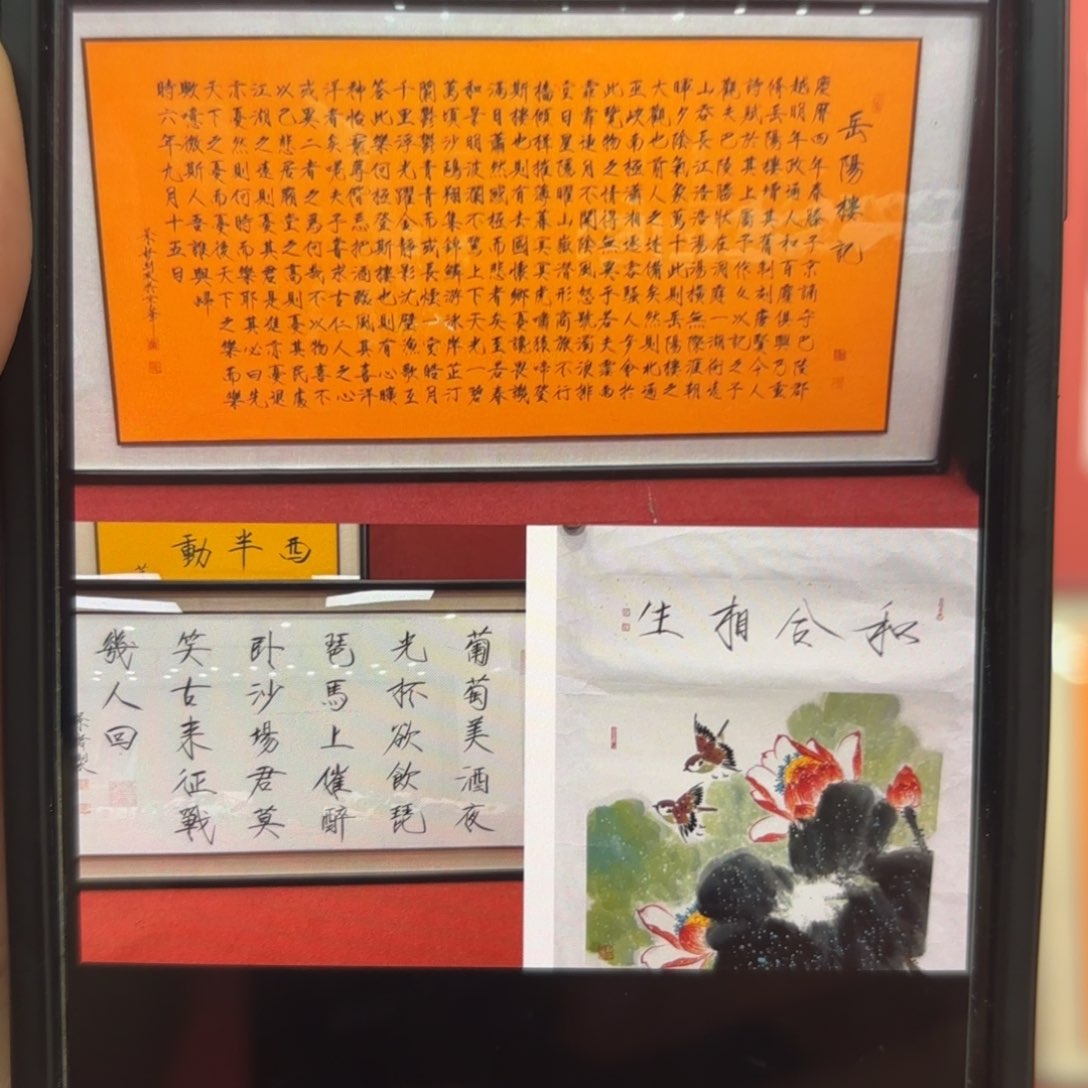 岳陽樓記
慶曆四年春滕子京謫守巴陵郡
越明年政通人和百廢俱興乃重
修岳陽樓增其舊制刻唐賢今人
詩賦於其上屬予作文以記之予
觀夫巴陵勝狀在洞庭一湖銜遠
山吞長江浩浩湯湯橫無際涯朝
暉夕陰氣象萬千此則岳陽樓之
大觀也前人之述備矣然則北通
巫峽南極瀟湘遷客騷人多會於
此覽物之情得無異乎若夫霪雨
霏霏連月不開陰風怒號濁浪排
空日星隱曜山嶽潛形商旅不行
檣傾楫摧薄暮冥冥虎嘯猿啼登
斯樓也則有去國懷鄉憂讒畏譏
滿目蕭然感極而悲者矣至若春
和景明波瀾不驚上下天光一碧
萬頃沙鷗翔集錦鱗游泳岸芷汀
蘭鬱鬱青青而或長煙一空皓月
千里浮光躍金靜影沈璧漁歌互
答此樂何極登斯樓也則有心曠
神怡寵辱偕忘把酒臨風其喜洋
洋者矣嗟夫予嘗求古仁人之心
或異二者之為何哉不以物喜不
以己悲居廟堂之高則憂其民處
江湖之遠則憂其君是進亦憂退
亦憂然則何時而樂耶其必曰先
天下之憂而憂後天下之樂而樂
歟噫微斯人吾誰與歸
時六年九月十五日
西半動
葡萄美酒夜
光杯欲飲琵
琶馬上催醉
臥沙場君莫
笑古來征戰
幾人回
和合相生